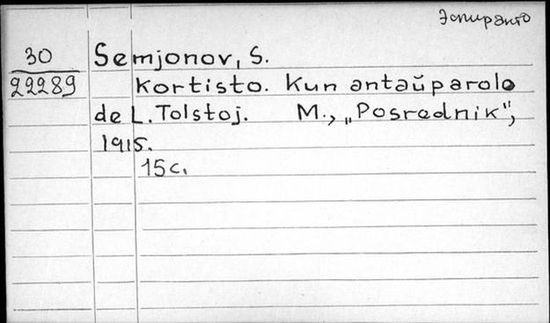 Эсперанто
30
22289
Semjonov, S.
Kortisto. Kun antaŭparolo
de L. Tolstoj. M., „Posrednik",
1915.
15 с.